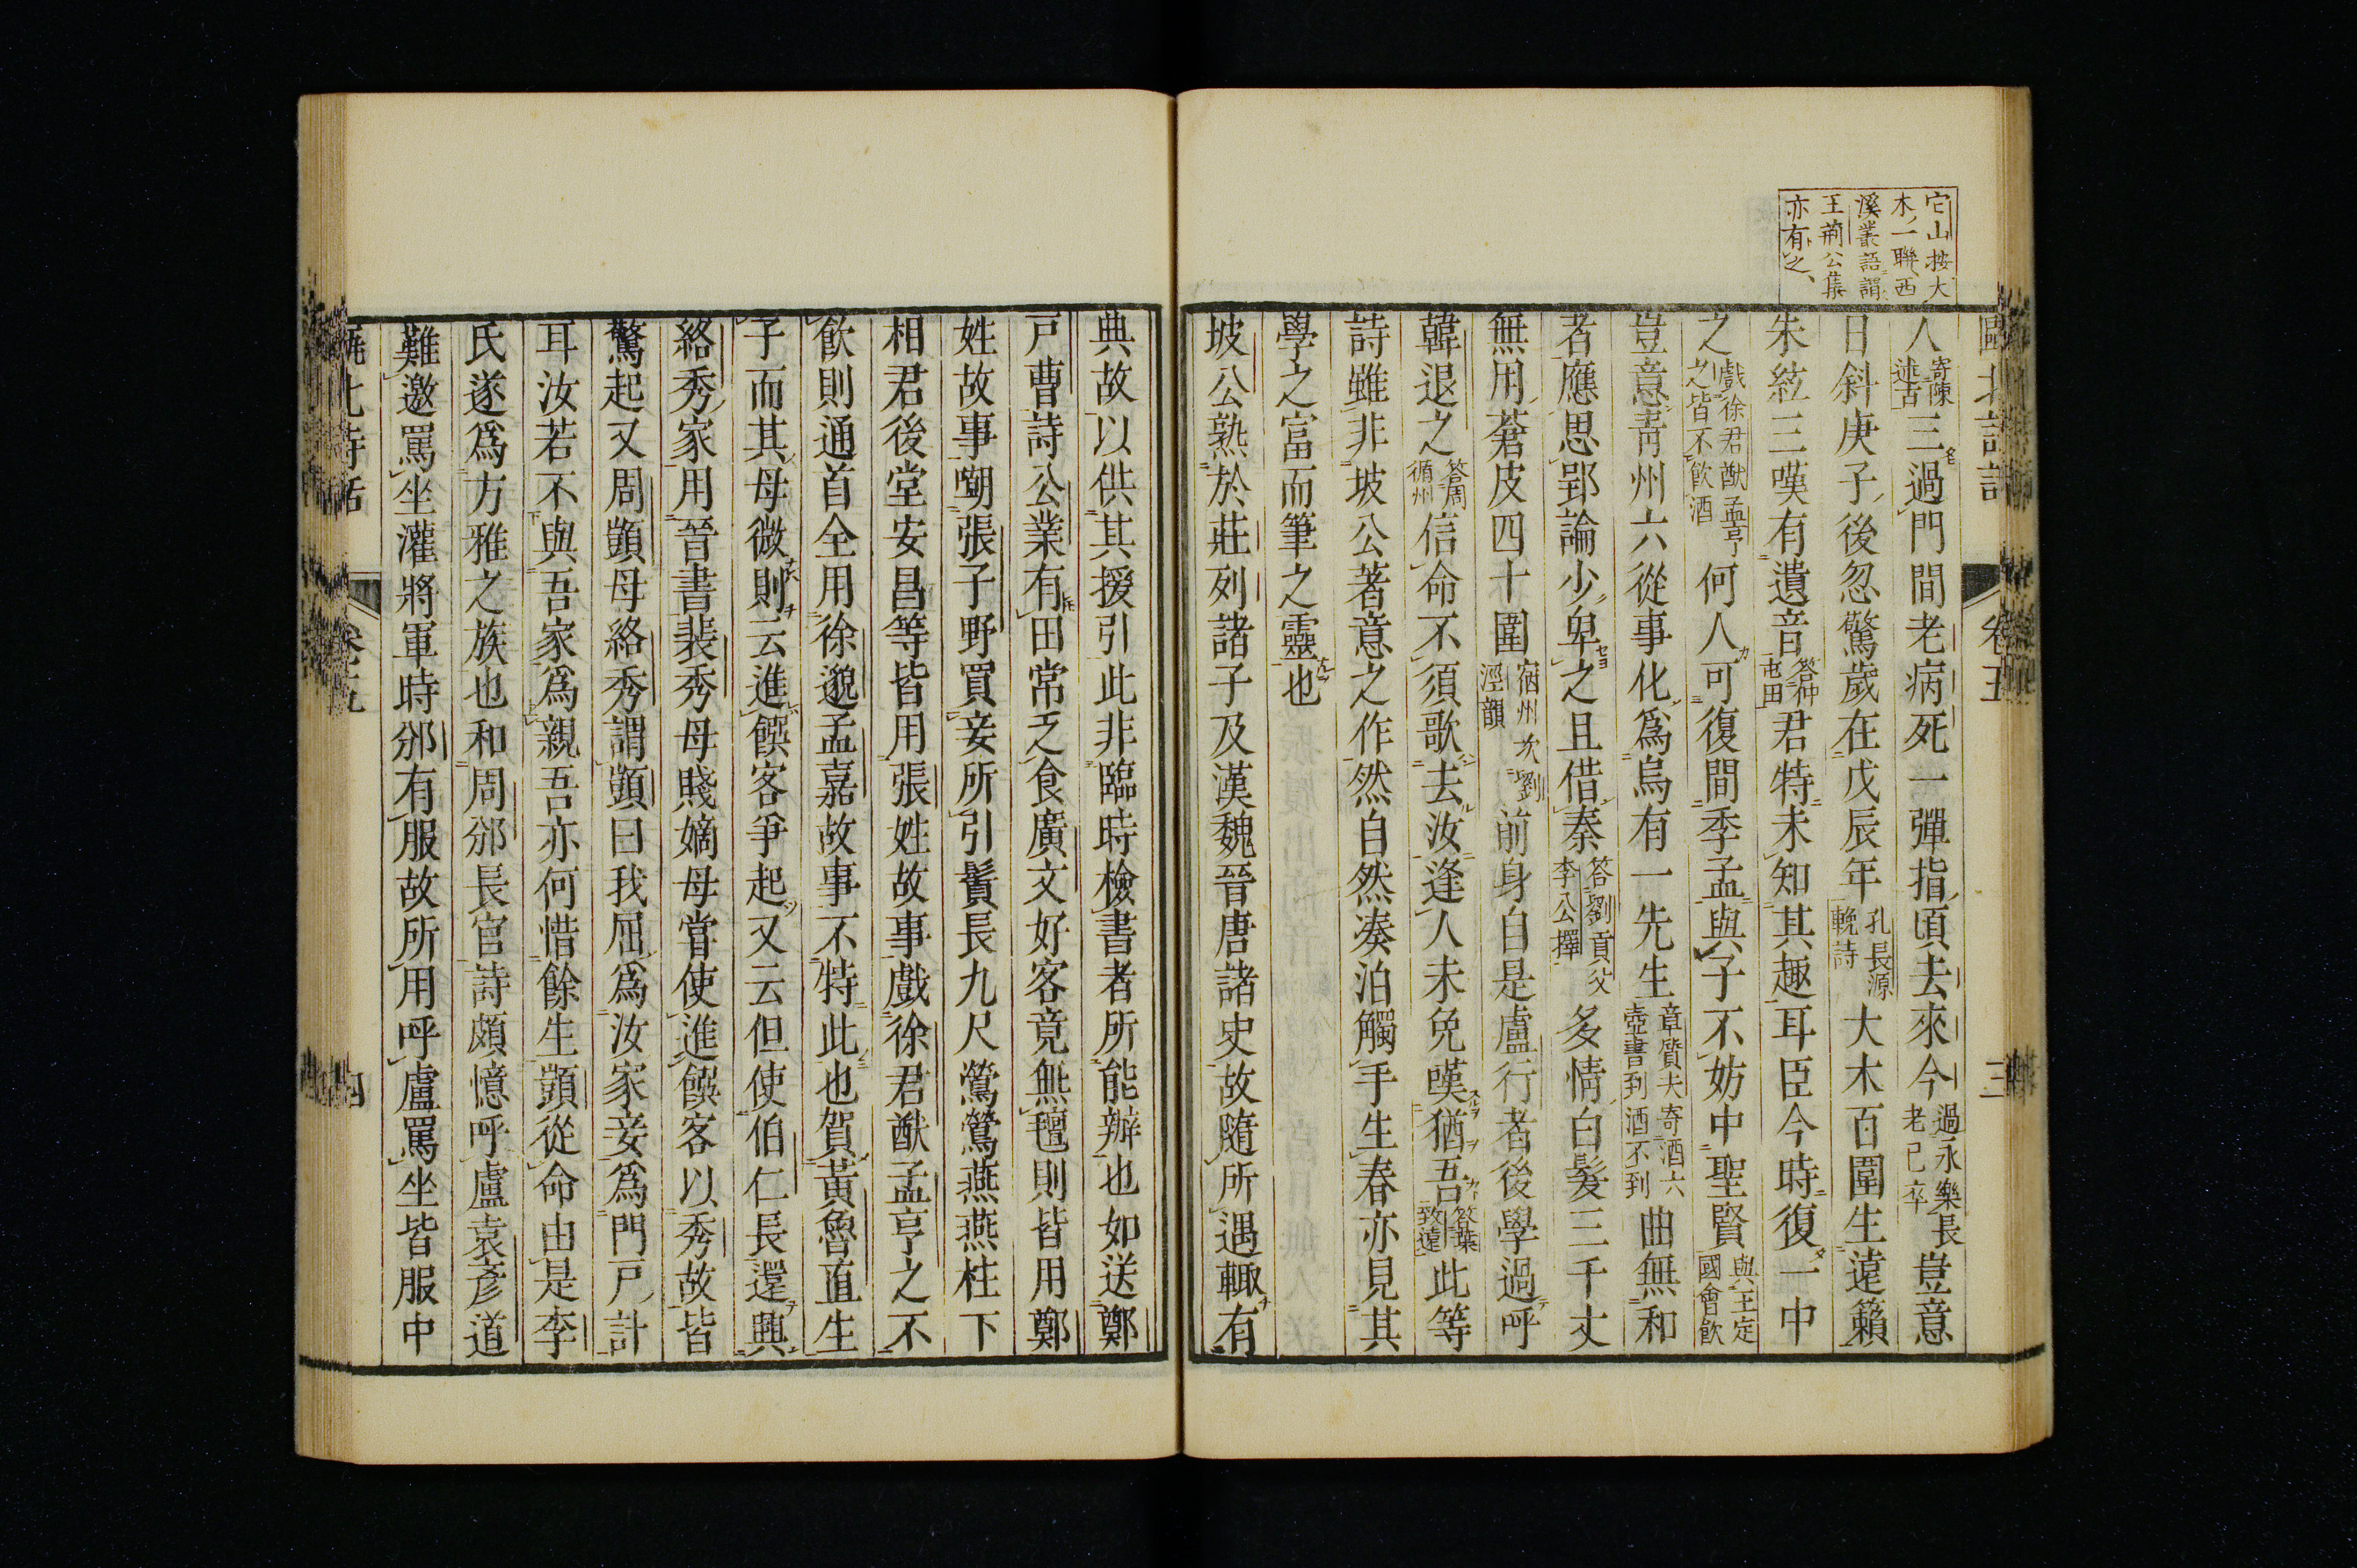 它山按大
木ノ一聯、西
溪叢語謂
王荊公集
亦有之、
人寄陳述古三過門間老病死一彈指頃去來今過永樂長老已卒豈意
日斜庚子後忽驚歲在戊辰年孔長源輓詩大木百圍生遠籟
朱絃三嘆有遺音答仲屯田君特未知其趣耳臣今時復一中
之戲徐君猷孟亨之皆不飲酒何人可復間季孟與子不妨中聖賢與王定國會飲
豈意靑州六從事化爲烏有一先生章質夫寄酒六壺書到酒不到曲無和
者應思郢論少卑之且借秦答劉貢父李公擇多情白髮三千丈
無用蒼皮四十圍宿州次劉涇韻前身自是盧行者後學過呼
韓退之答周循州信命不須歌去汝逢人未免嘆猶吾答葉致遠此等
詩雖非坡公著意之作然自然湊泊觸手生春亦見其
學之富而筆之靈也
坡公熟於莊列諸子及漢魏晉唐諸史故隨所遇輙有
典故以供其援引此非臨時檢書者所能辦也如送鄭
戸曹詩公業有田常乏食廣文好客竟無氊則皆用鄭
姓故事嘲張子野買妾所引鬢長九尺鶯鶯燕燕柱下
相君後堂安昌等皆用張姓故事戲徐君猷孟亨之不
飮則通首全用徐邈孟嘉故事不特此也賀黃魯直生
子而其母微則云進饌客爭起又云但使伯仁長還興
絡秀家用晉書裴秀母賤嫡母嘗使進饌客以秀故皆
驚起又周顗母絡秀謂顗曰我屈爲汝家妾爲門戸計
耳汝若不與吾家爲親吾亦何惜餘生顗從命由是李
氏遂爲方雅之族也和周邠長官詩頗憶呼盧袁彥道
難邀罵坐灌將軍時邠有服故所用呼盧罵坐皆服中